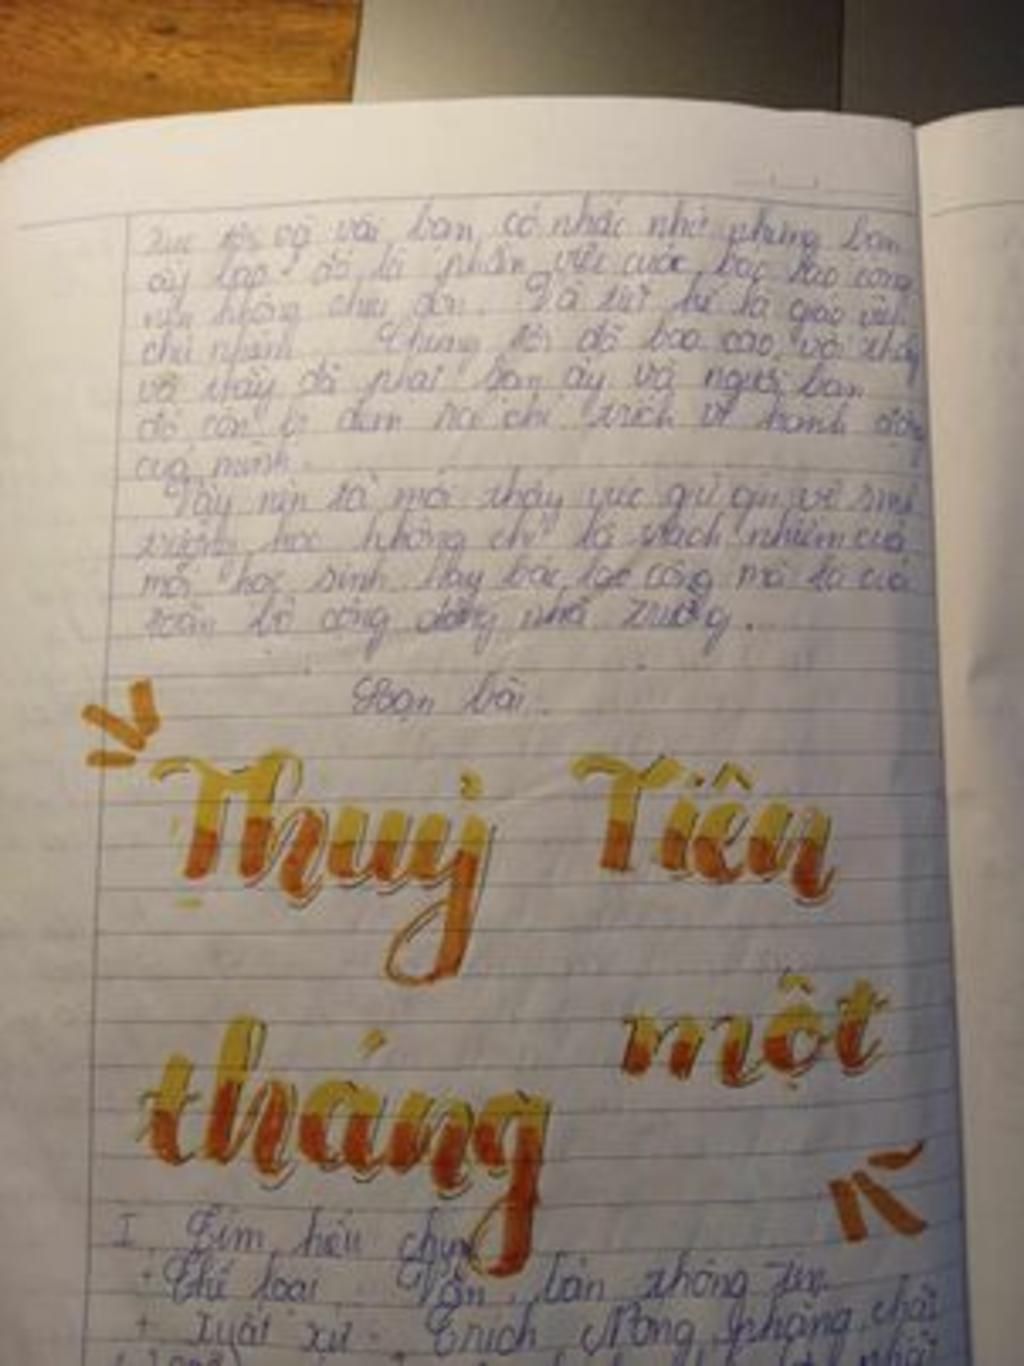 tôi và vài bạn có nhắc nhở nhưng bạn
ấy đó là phần việc của bác lao công
nên không chịu dọn. là giáo viên
chủ nhiệm. Chúng tôi đã báo cáo với thầy
và thầy đã phạt bạn ấy và người bạn
đó còn bị chỉ trích vì hành động
của mình.
Vậy nên ta mới thấy việc giữ gìn vệ sinh
trường học không chỉ là trách nhiệm của
mỗi học sinh hay bác lao công mà là của
toàn bộ cộng đồng nhà trường.
Soạn bài.
Thuỷ Tiên
tháng một
I. Tìm hiểu chung
Thể loại: Văn bản thông tin
+ Xuất xứ: Trích Nóng, phẳng, chật